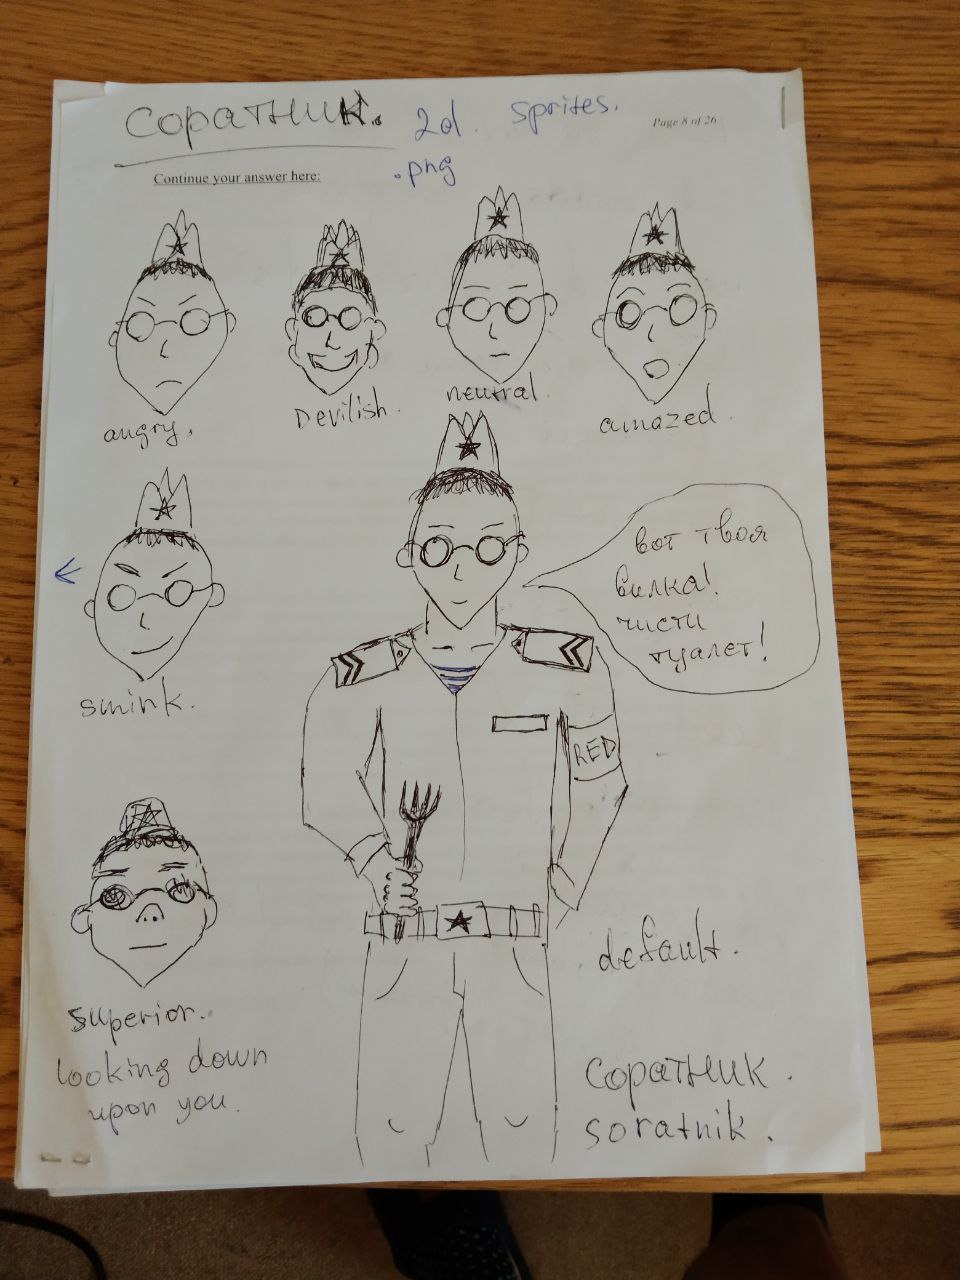 Соратник.
2d. sprites.
.png
Page 8 of 26
Continue your answer here:
angry.
Devilish.
neutral.
amazed.
вот твоя
вилка!
чисти
туалет!
smink.
RED
superior.
looking down
upon you.
default.
Соратник.
soratnik.